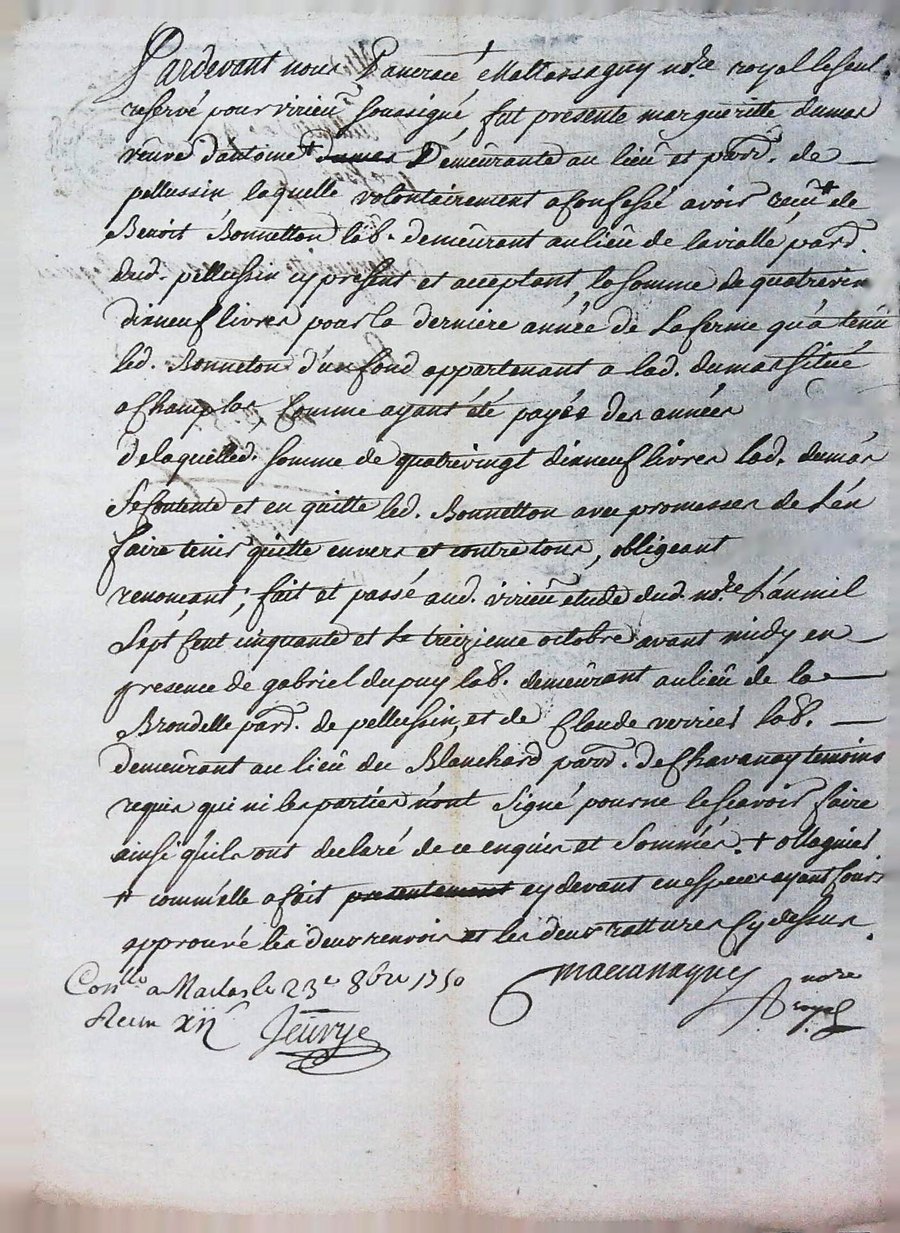 Pardevant nous Pancrace Mattassaguy nore. royal le seul
reservé pour virieu soussigné, fut presente margueritte dumas
veuve d'antoine + dumas Demeurante au lieu et parr. de
pellussin laquelle volontairement a confessé avoir reçu ++ de
Benoit Bonnetton lab. demeurant au lieu de lavialle parr.
dud. pellussin cy present et acceptant, la somme de quatrevin
dixneuf livres pour la derniere année de La ferme qu'a tenu
led. Bonneton d'un fond appartenant a lad. dumas situé
a Champlas comme ayant été payés des années
de laquelled. somme de quatrevingt dixneuf livres lad. dumas
se contente et en quitte led. Bonnetton avec promesses de L'en
faire tenir quitte envers et contre tous, obligeant
renonçant; fait et passé aud. virieu etude dud. nore. L'an mil
sept cent cinquante et le treizieme octobre avant midy en
presence de gabriel dupuy lab. demeurant au lieu de la
Brondelle parr. de pellussin, et de Claude verrier lab.
demeurant au lieu du Blanchard parr. de Chavanay temoins
requis qui ni les parties n'ont signé pour ne le scavoir faire
ainsi qu'ils ont declaré de ce enquis et sommés. + ollagnier
++ comm'elle a fait presentement cy devant en especes ayant cours
approuvé les deux renvois et les deux rattures cy dessus.
nore
royal
Conllé a Maclas le 23e 8bre 1750
Recu XII s
Jeuvye